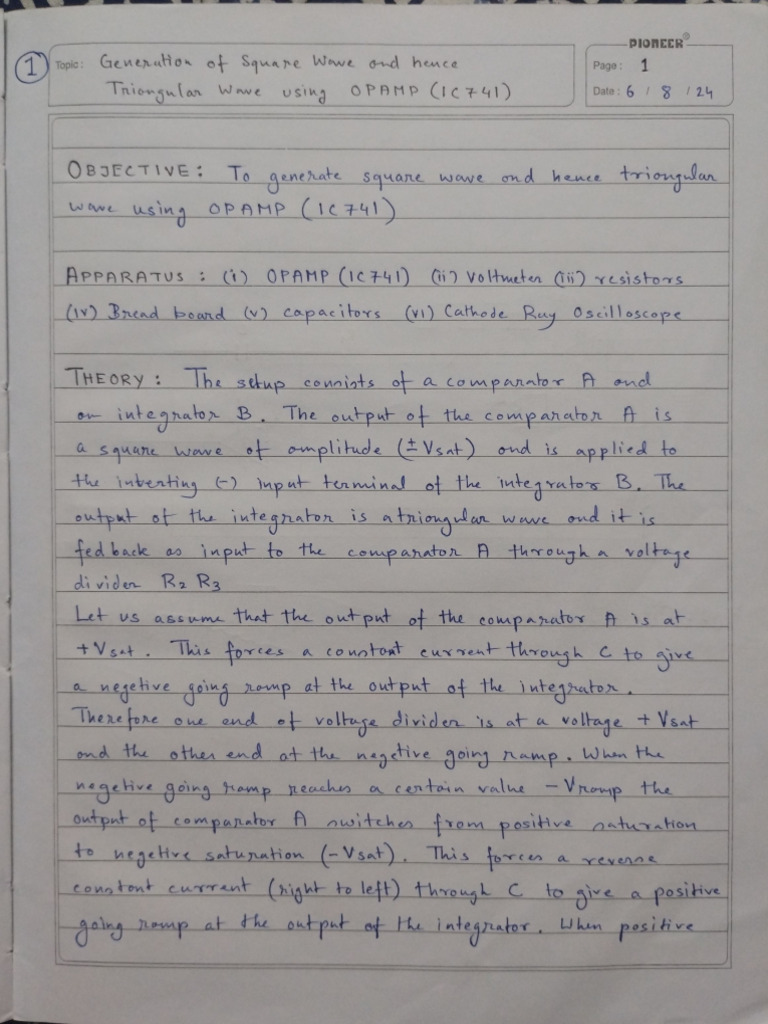 PIONEER®
1
Topic: Generation of Square Wave and hence
Triangular Wave using OPAMP (IC741)
Page: 1
Date: 6 / 8 / 24
OBJECTIVE: To generate square wave and hence triangular
wave using OPAMP (IC741)
APPARATUS: (i) OPAMP (IC741) (ii) Voltmeter (iii) resistors
(iv) Bread board (v) capacitors (vi) Cathode Ray Oscilloscope
THEORY: The setup consists of a comparator A and
an integrator B. The output of the comparator A is
a square wave of amplitude (±Vsat) and is applied to
the interting (-) input terminal of the integrator B. The
output of the integrator is a triangular wave and it is
fed back as input to the comparator A through a voltage
divider R2 R3
Let us assume that the output of the comparator A is at
+Vsat. This forces a constant current through C to give
a negetive going ramp at the output of the integrator.
Therefore one end of voltage divider is at a voltage +Vsat
and the other end at the negetive going ramp. When the
negetive going ramp reaches a certain value -Vramp the
output of comparator A switches from positive saturation
to negetive saturation (-Vsat). This forces a reverse
constant current (right to left) through C to give a positive
going ramp at the output of the integrator. When positive